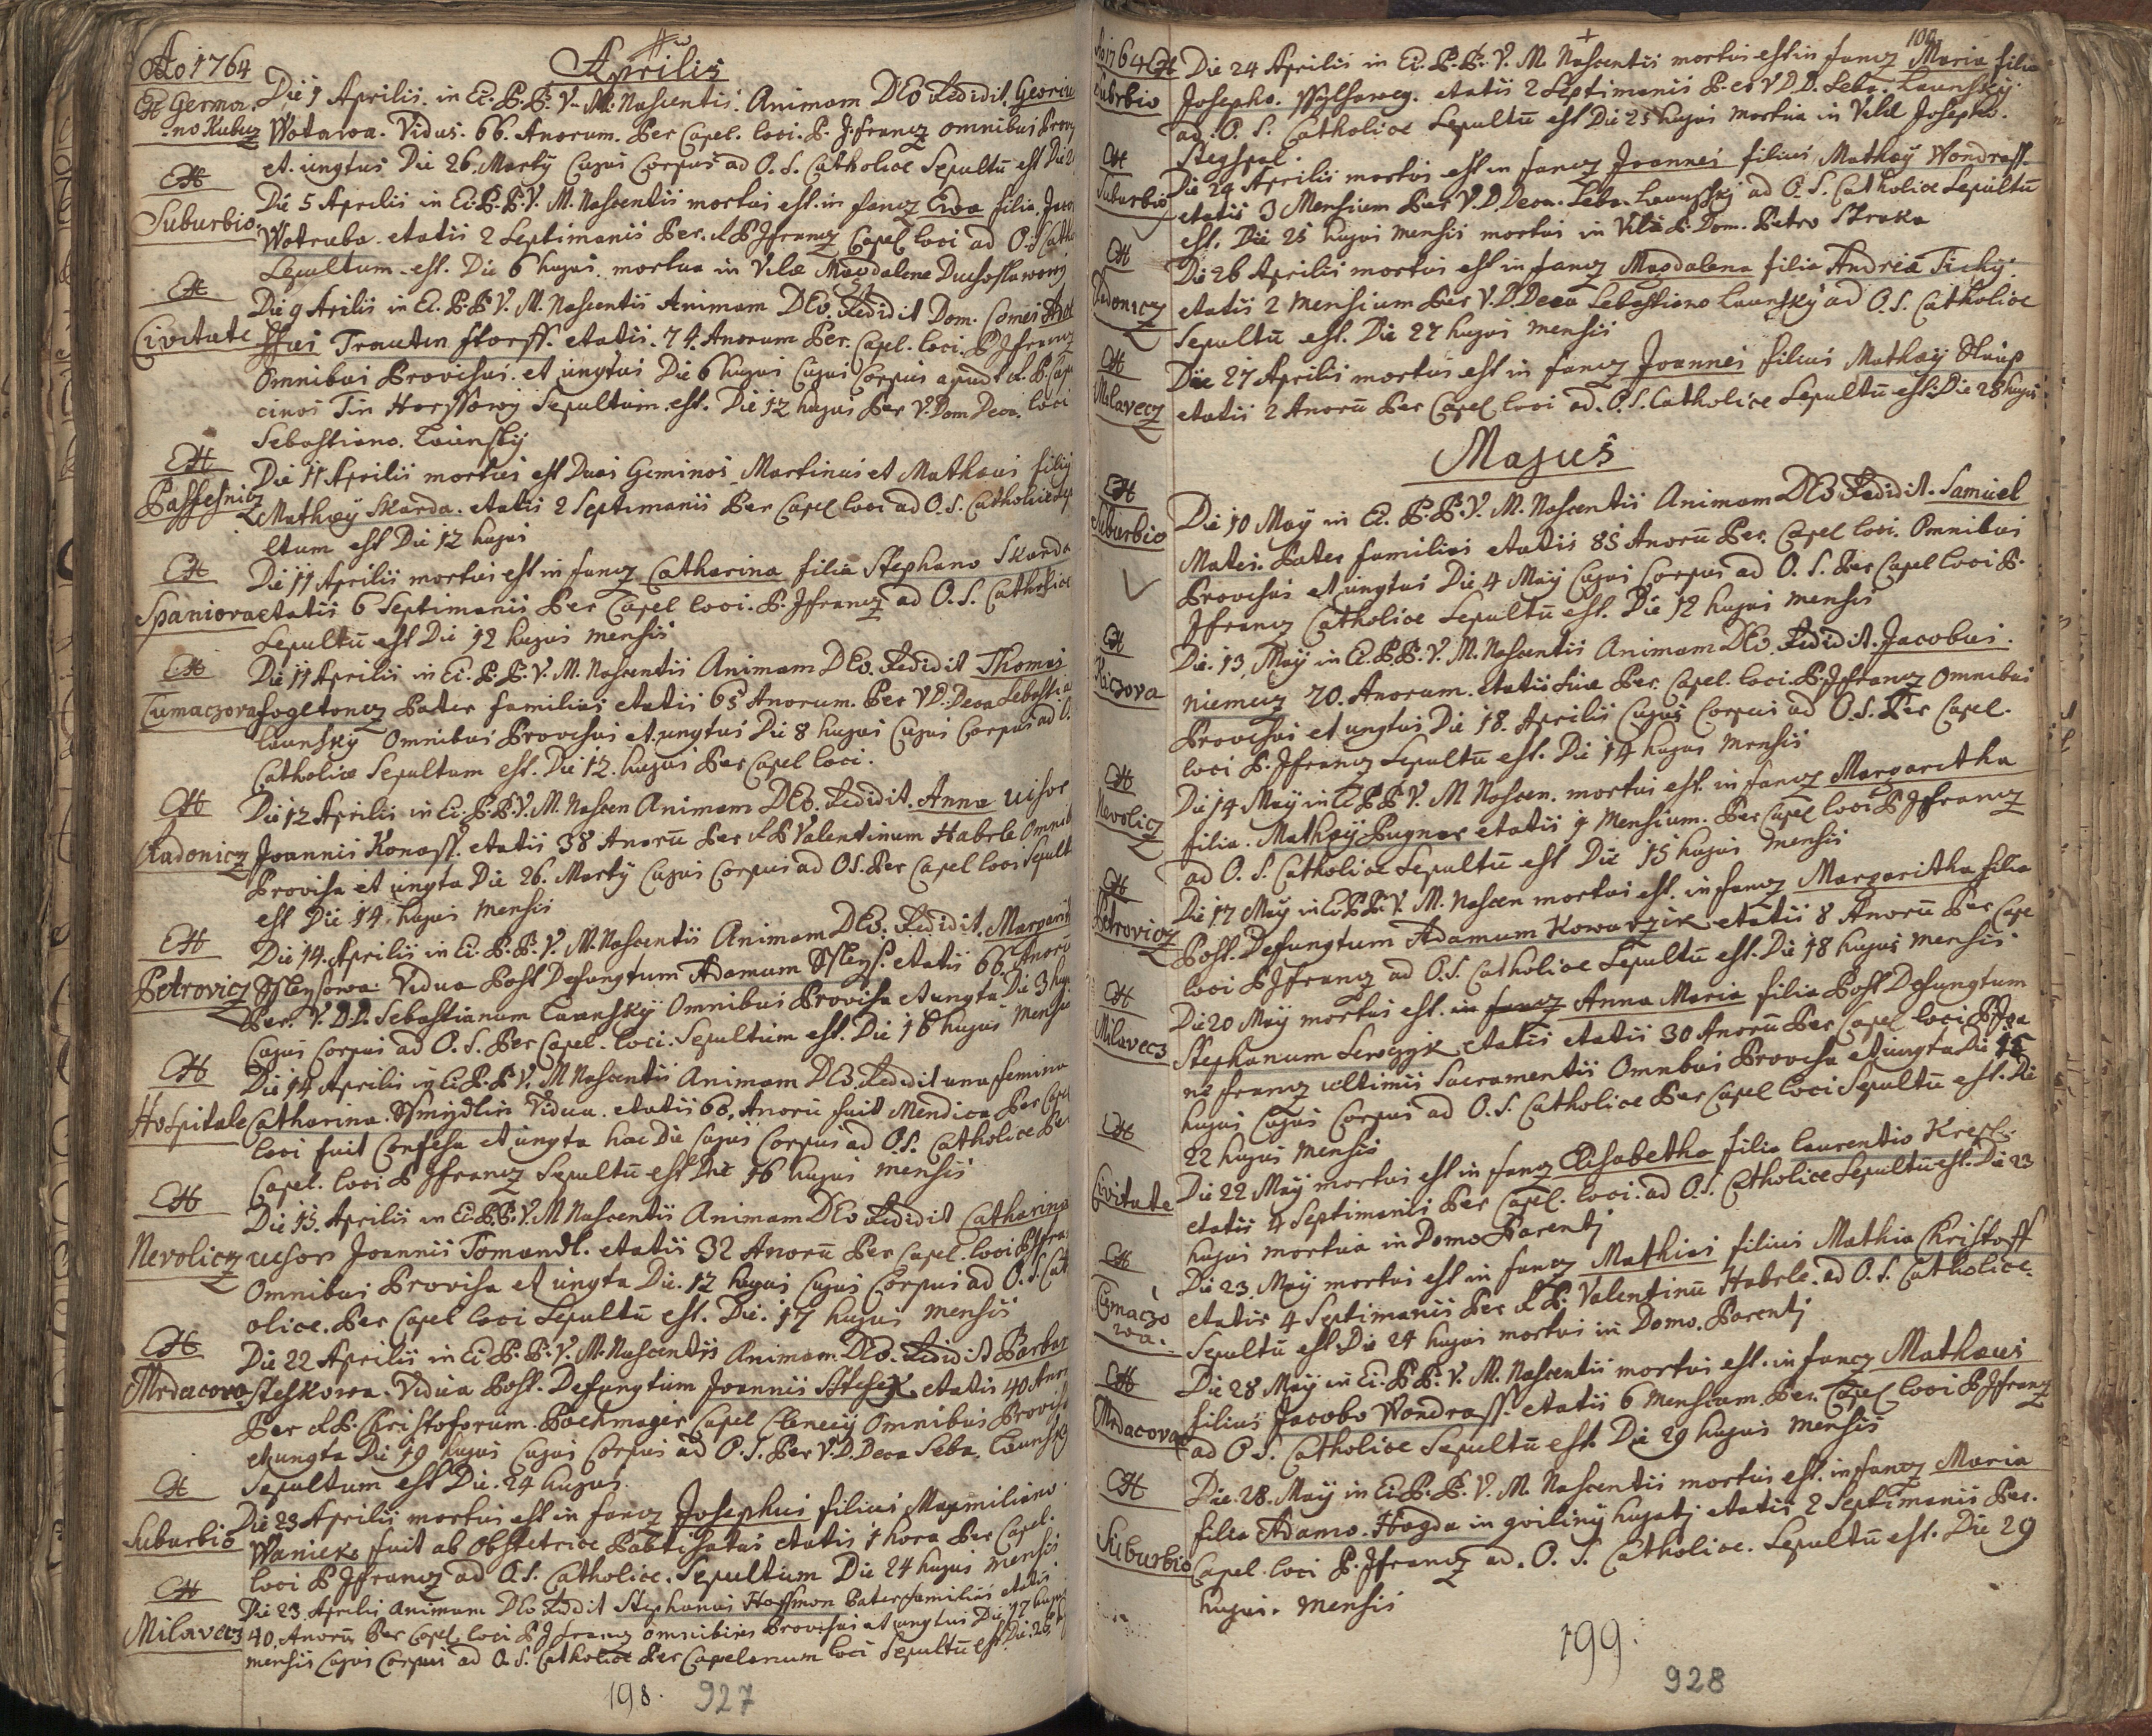 Ao 1764
Aprilis
Ex Germa
no Kubicz
Die 1 Aprilis. in Ec. B.B. V. M. Nascentis. Animam DEo Redidit. Georiu
Wotawa. Vidus. 66. Anorum. Per Capel. loci. P. J. francz omnibus Provi
et. ungtus Die 26. Marty Cujus Corpus ad O. S. Catholice Sepultū est Die 2
Suburbio.
Die 5 Aprilis in Ec. B.B. V. M. Nascentis mortus est. in fancz Ewa filia. Jaco
Wotruba. etatis 2 Septimanis Per. R P Jfrancz Capel loci ad O. S. Catho
Sepultum est. Die 6 hujus. mortua in Vile Magdalene Duchoslawowy
Civitate
Die 9 Arilis in Ec. B.B V. M. Nascentis Animam DEo. Redidit Dom. Comes
Trauten storff. etatis. 74. Anorum Per. Capel. loci. P Jfrancz
Omnibus Provisus. et ungtus Die 6 hujus Cujus Corpus apud R. P. Capu
cinos Tin Horssowy Sepultum. est. Die 12 hujus Per V. Dom Deca. loci
Sebastiano. Launsky
Passesnicz
Die 11 Aprilis mortus est Duos Geminos Martinus et Mathæus filiy
Mathæy Skarda. etatis 2 Septimanis Per Capel loci ad O. S. Catholice Sep
ultum est Die 12 hujus
Spaniova
Die 11 Aprilis mortus est in fancz Catharina filia Stephano Skarda
etatis 6 Septimanis Per Capel loci. P. Jfrancz ad O. S. Catholice
Sepultū est Die 12 hujus mensis
Tumaczova
Die 11 Aprilis in Ec. B. B. V. M. Nascentis Animam DEo. Redidit Thomas
fogltoncz Pater familias etatis 65 Anorum. Per V D. Deca Sebastia
Launsky Omnibus Provisus et ungtus Die 8 hujus Cujus Corpus ad O.
Catholice Sepultum est. Die 12. hujus Per Capel loci.
Radonicz
Die 12 Aprilis in Ec. B. B. V. M. Nascen Animam DEo. Redidit. Anna Uxsor
Joannis Konass. etatis 38 Anorū Per R P Valentinum Habrle Omnib
Provisa et ungta Die 26. Marty Cujus Corpus ad O S. Per Capel loci Sepult
est Die 14. hujus mensis
Petrovicz
Die 14. Aprilis in Ec. B. B. V. M. Nascentis Animam DEo. Redidit. Margarit
Vidua Post Defungtum Adamum etatis 66. Anorū
Per. V. D.D. Sebastianum Launsky Omnibus Provisa et ungta Die 3 huj
Cujus Corpus ad O. S. Per Capel. loci. Sepultum est. Die 16 hujus Mensis
Hospitale
Die 14 Aprilis in Ec. B. B V. M Nascentis Animam DEo. Redidit una ffemina
Catharina. Vidua. etatis 60. Anorū fuit Mendica Per Capel
loci fuit Confesa et ungta hac Die Cujus Corpus ad O. S. Catholice Per
Capel. loci P Jfrancz Sepultū est Die 16 hujus mensis
Nevolicz
Die 15. Aprilis in Ec. B. B. V. M Nascentis Animam DEo Redidit Catharina
uxsor Joannis Tomandl. etatis 32 Anorū Per Capel. loci P Jfran
Omnibus Provisa et ungta Die. 12 hujus Cujus Corpus ad O. S. Cat
olice. Per Capel loci Sepultū est. Die. 17 hujus mensis
Mrdacova
Die 22 Aprilis in Ec. B. B. V. M. Nascentis Animam. DEo. Redidit Barbar
steskowa. Vidua Post. Defungtum Joannis etatis 40 Anor
Per R P. Christoforum. Bachmager Capel Clenciy Omnibus Provisa
et ungta Die 19 hujus Cujus Corpus ad O. S. Per V. D. Deca Seba. Launsky
Sepultum est Die. 24 hujus.
Suburbio
Die 23 Aprilis mortus est in fancz Josephus filius Maxmiliano
Waniek fuit ab Obstetrice Babtisatus etatis 1 hora Per Capel.
loci P Jfrancz ad O. S. Catholice. Sepultum Die 24 hujus mensis
Milavecz
Die 23. Aprilis Animam DEo Redidit Stephanus Hoffmon Pater familias etatis
40. Anorū Per Capel. loci P J francz omnibus Provisus et ungtus Die 17 hujus
mensis Cujus Corpus ad O. S. Catholice Per Capelanum loci Sepultū est Die. 25
198.
927
Ao 1764
100
Suburbio
Die 24 Aprilis in Ec. B. B. V. M. Nascentis mortus est in fancz Maria filia
Josepho. etatis 2 Septimanis P. et V D. D. Seba. Launsky.
ad. O. S. Catholice Sepultū est Die 25 hujus mortua in Vile Josepho.
Stegspal.
Suburbio
Die 24 Aprilis mortus est in fancz Joannes filius Mathæy Wondrass
etatis 3 Mensium Per V. D. Deca. Seba. Launsky ad O. S. Catholice Sepultū
est. Die 25 hujus mensis mortus in Vile P. Dom. Petro Straka
Radonicz
Die 26 Aprilis mortus est in fancz Magdalena filia Andrea Tichy.
etatis 2 mensium Per V. D. Deca Sebastiano Launsky ad O. S. Catholice
Sepultū est. Die 27 hujus mensis
Milavecz
Die 27 Aprilis mortus est in fancz Joannes filius Mathæy
etatis 2 Anorū Per Capel loci ad. O. S. Catholice Sepultū est. Die 28 hujus
Majus
Suburbio
Die 10 May in Ec. B. B. V. M. Nascentis Animam DEo Redidit. Samuel
Mates. Pater familias etatis 85 Anorū Per. Capel loci. Omnibus
Provisus et ungtus Die 4 May Cujus Corpus ad O. S. Per Capel loci P.
Jfrancz Catholice Sepultū est. Die 12 hujus mensis
Kiczova
Die. 13. May in Ec. B. B. V. M. Nascentis Animam DEo. Redidit. Jacobus.
niemecz 70. Anorum. etatis suæ Per. Capel. loci. P. Jfrancz Omnibus
Provisus et ungtus Die 18. Aprilis Cujus Corpus ad O. S. Per Capel.
loci P. Jfrancz Sepultū est. Die 14 hujus mensis
Nevolicz
Die 14 May in Ec B B V. M Nascen. mortus est. in fancz Margaretha
filia. Mathæy Pugner etatis 9 Mensium. Per Capel loci P Jfrancz
ad O. S. Catholice Sepultū est Die 15 hujus mensis
Petrovicz
Die 17 May in Ec B B. V. M. Nascen mortus est. in fancz Margaritha filia
Post. Defungtum Adamum Kowarzik etatis 8 Anorū Per Cape
loci P Jfrancz ad O. S. Catholice Sepultū est. Die 18 hujus mensis
Milavecz
Die 20 May mortus est. in fancz Anna Maria filia Post Defungtum
Stephanum etatis etatis 30 Anorū Per Capel loci P Joa
nē francz ultimis Sacramentis Omnibus Provisa et ungta Die 15
hujus Cujus Corpus ad O. S. Catholice Per Capel loci Sepultū est. Die
22 hujus mensis
Civitate
Die 22 May mortus est in fancz Elisabetha filia Laurentio
etatis 4 Septimanis Per Capel. loci. ad O. S. Catholice Sepultū est. Die 23
hujus mortua in Domo Parentj
Tumaczo
wa.
Die 23. May mortus est in fancz Mathias filius Mathia Christoff
etatis 4 Septimanis Per R P. Valentinū Habrle. ad O. S. Catholice.
Sepultū est. Die 24 hujus mortus in Domo. Parentj
Mrdacova
Die 28 May in Ec. B. B. V. M. Nascentis mortus est. in fancz Mathæus
filius Jacobo Wondrass. etatis 6 mensium. Per. Capel loci P Jfrancz
ad O S. Catholice Sepultū est. Die 29 hujus mensis
Suburbio
Die. 28. May in Ec. B. B. V. M. Nascentis mortus est. in fancz Maria
filia Adamo. Hogda in hujatj etatis 2 Septimanis Per.
Capel. loci P. Jfrancz ad. O. S. Catholice. Sepultū est. Die 29
hujus. mensis
199.
928